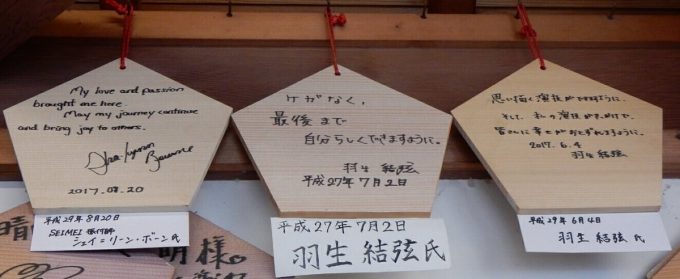 My love and passion
brought me here.
May my journey continue
and bring joy to others.
2017.08.20
平成29年8月20日
SEIMEI 振付師
シェイ＝リーン・ボーン氏
ケガなく、
最後まで
自分らしくできますように。
羽生 結弦
平成27年7月2日
平成27年7月2日
羽生 結弦氏
思い描く演技ができますように。
そして、私の演技が
皆さんに幸せがおとずれますように。
2017.6.4
羽生 結弦
平成29年6月4日
羽生 結弦氏
晴明様